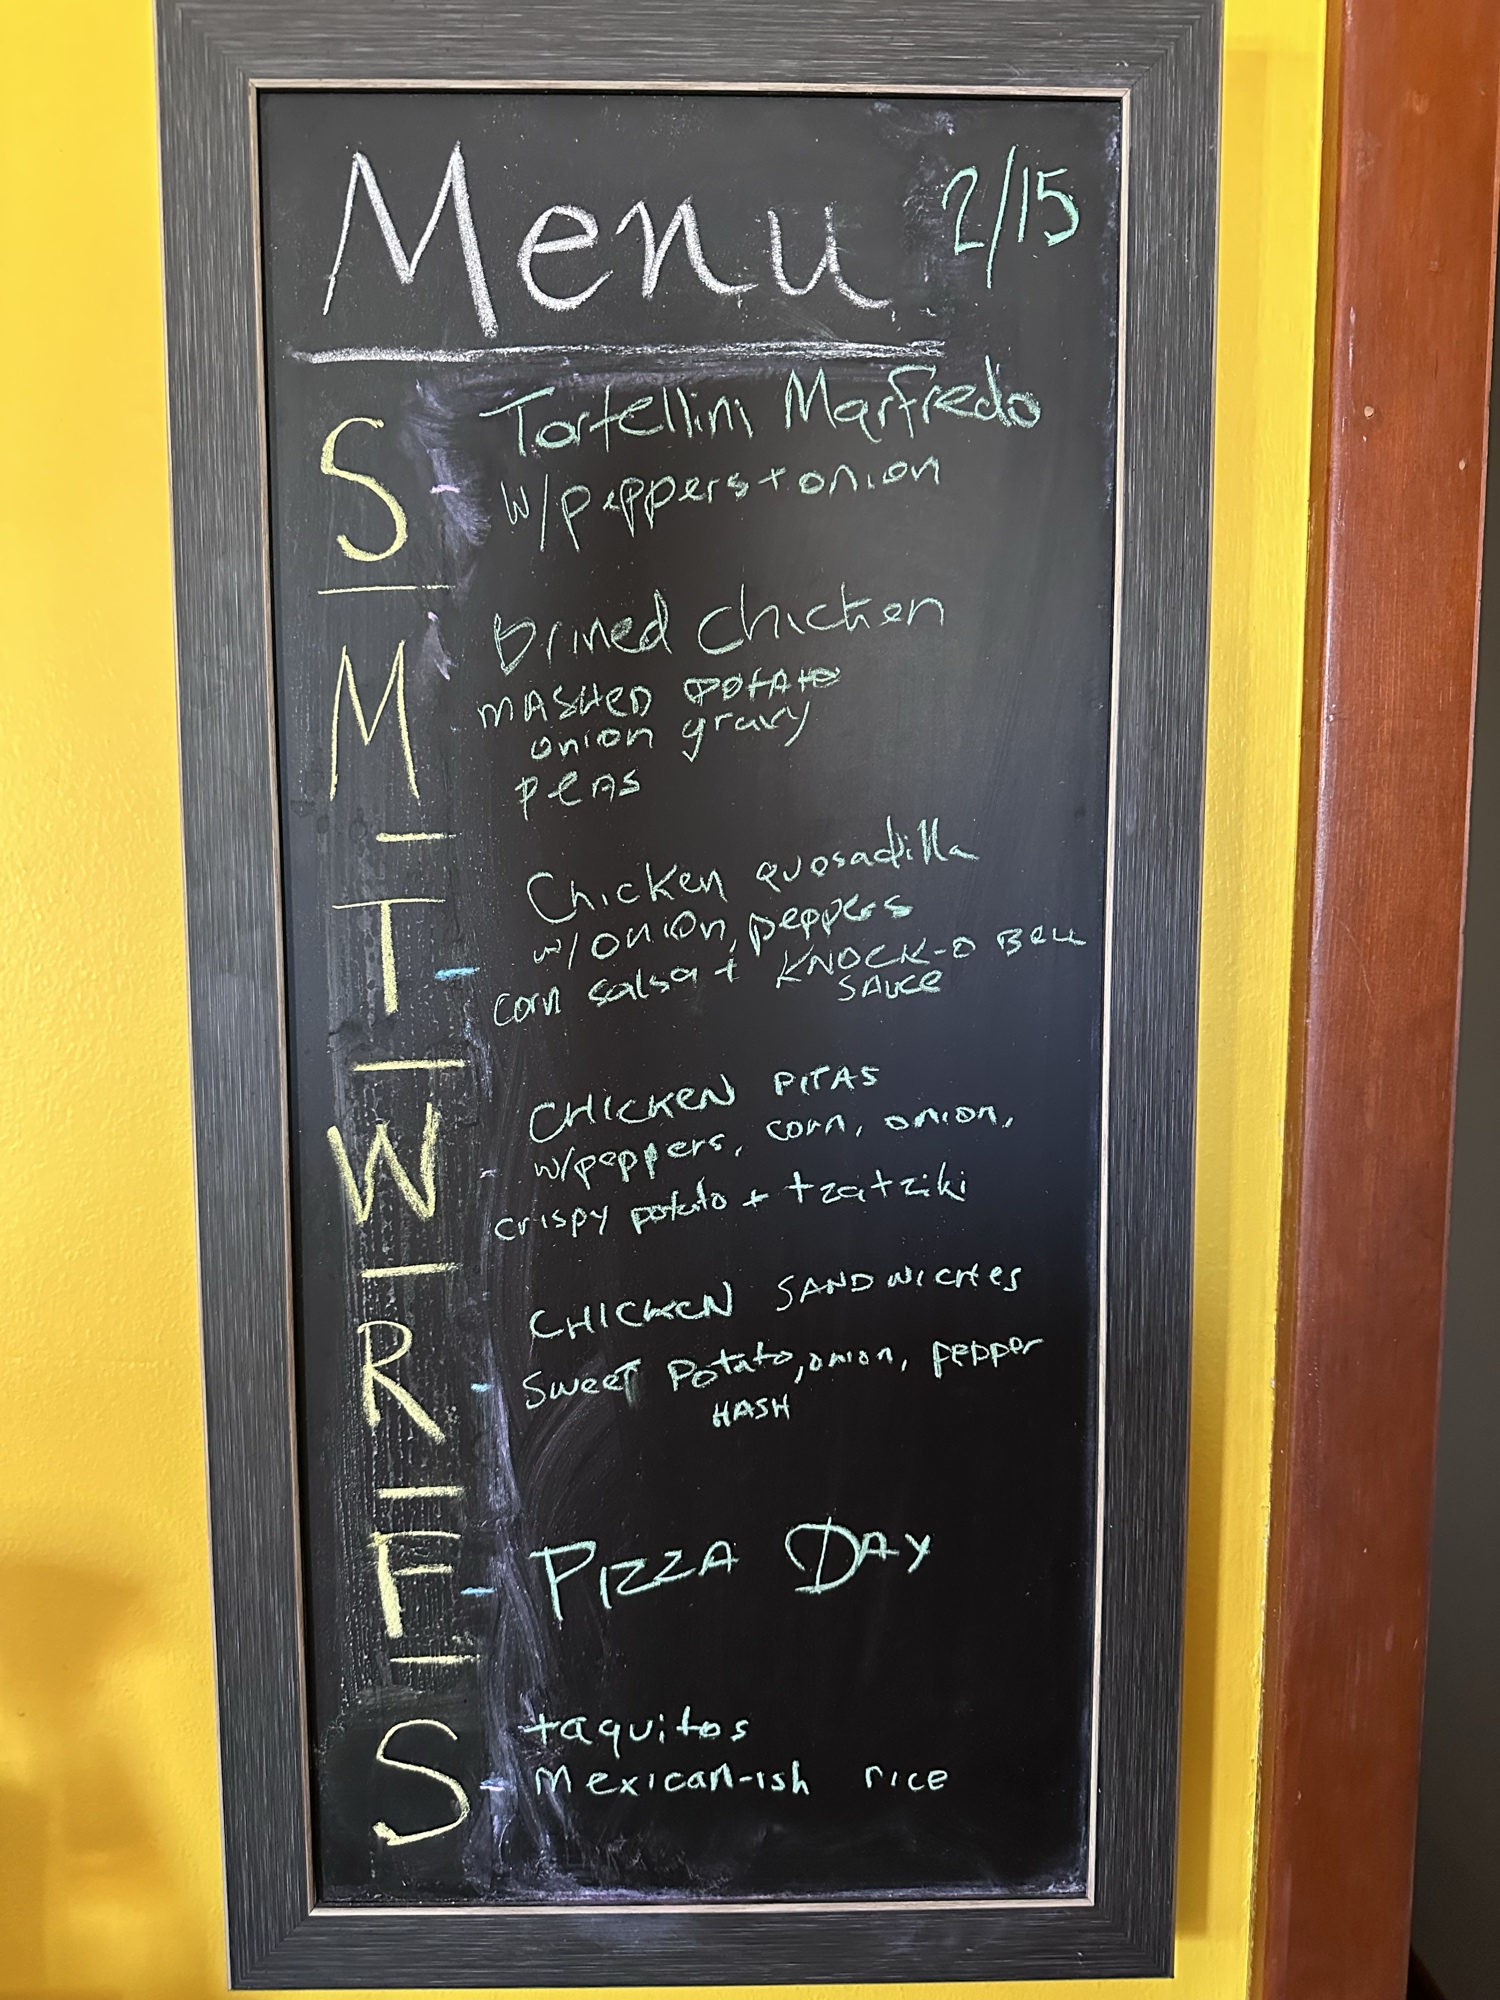 Menu 2/15
S - Tortellini Marfredo
w/peppers + onion
M Brined chicken
MASHED POTATO
onion gravy
PEAS
T - Chicken quesadilla
w/onion, peppers
corn salsa + KNOCK-O BELL
SAUCE
W - CHICKEN PITAS
w/peppers, corn, onion,
crispy potato + tzatziki
R - CHICKEN SANDWICHES
SWEET Potato, onion, pepper
HASH
F - PIZZA DAY
S - taquitos
Mexican-ish rice